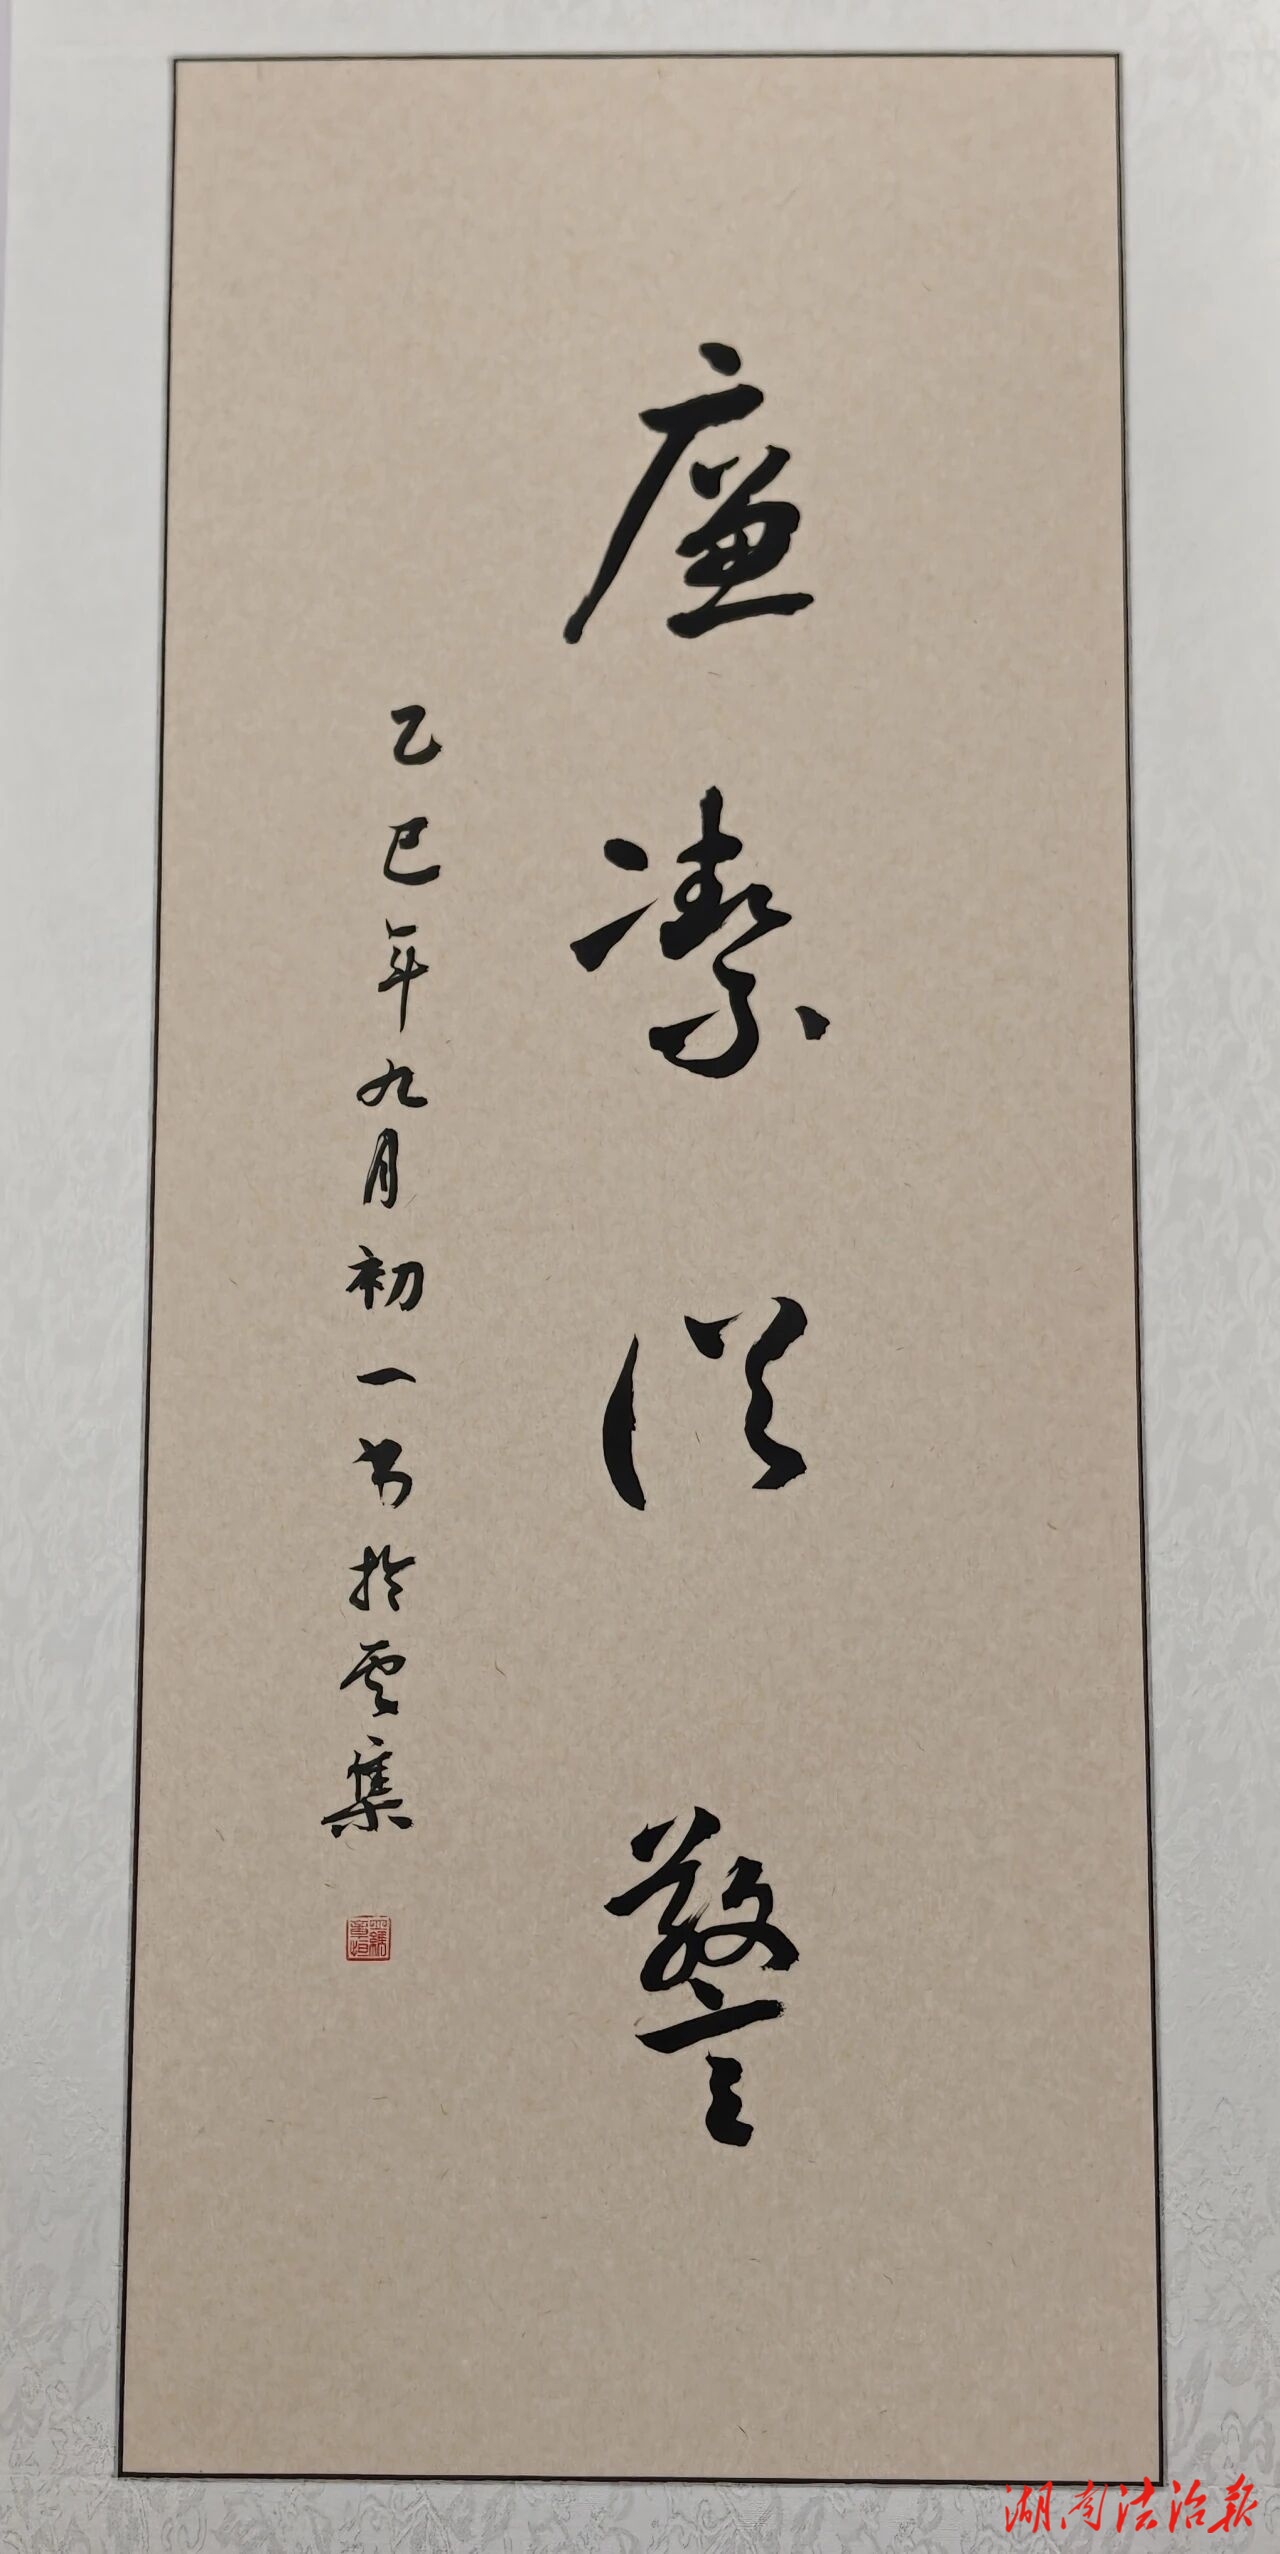 廉潔從警
乙巳年九月初一书於雲集
湖南法治报